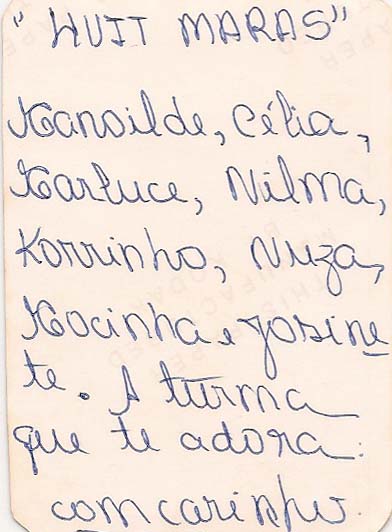 "HUIT MARAS"
Kanoilde, Célia,
Karluce, Nilma,
Korrinho, Nuza,
Kocinha e Josine
te. A turma
que te adora:
com carinho.